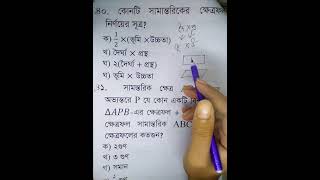 ৪০. কোনটি সামান্তরিকের ক্ষেত্রফল
নির্ণয়ের সূত্র?
ক) 1/2 ×(ভূমি ×উচ্চতা)
খ) দৈর্ঘ্য × প্রস্থ
গ) ২(দৈর্ঘ্য + প্রস্থ)
ঘ) ভূমি × উচ্চতা
৪১. সামান্তরিক ক্ষেত্র
অভ্যন্তরে P যে কোন একটি বি
ΔAPB-এর ক্ষেত্রফল +
ক্ষেত্রফল সামান্তরিক ABC
ক্ষেত্রফলের কতগুন?
ক) ২গুণ
খ) ৩ গুণ
গ) সমান